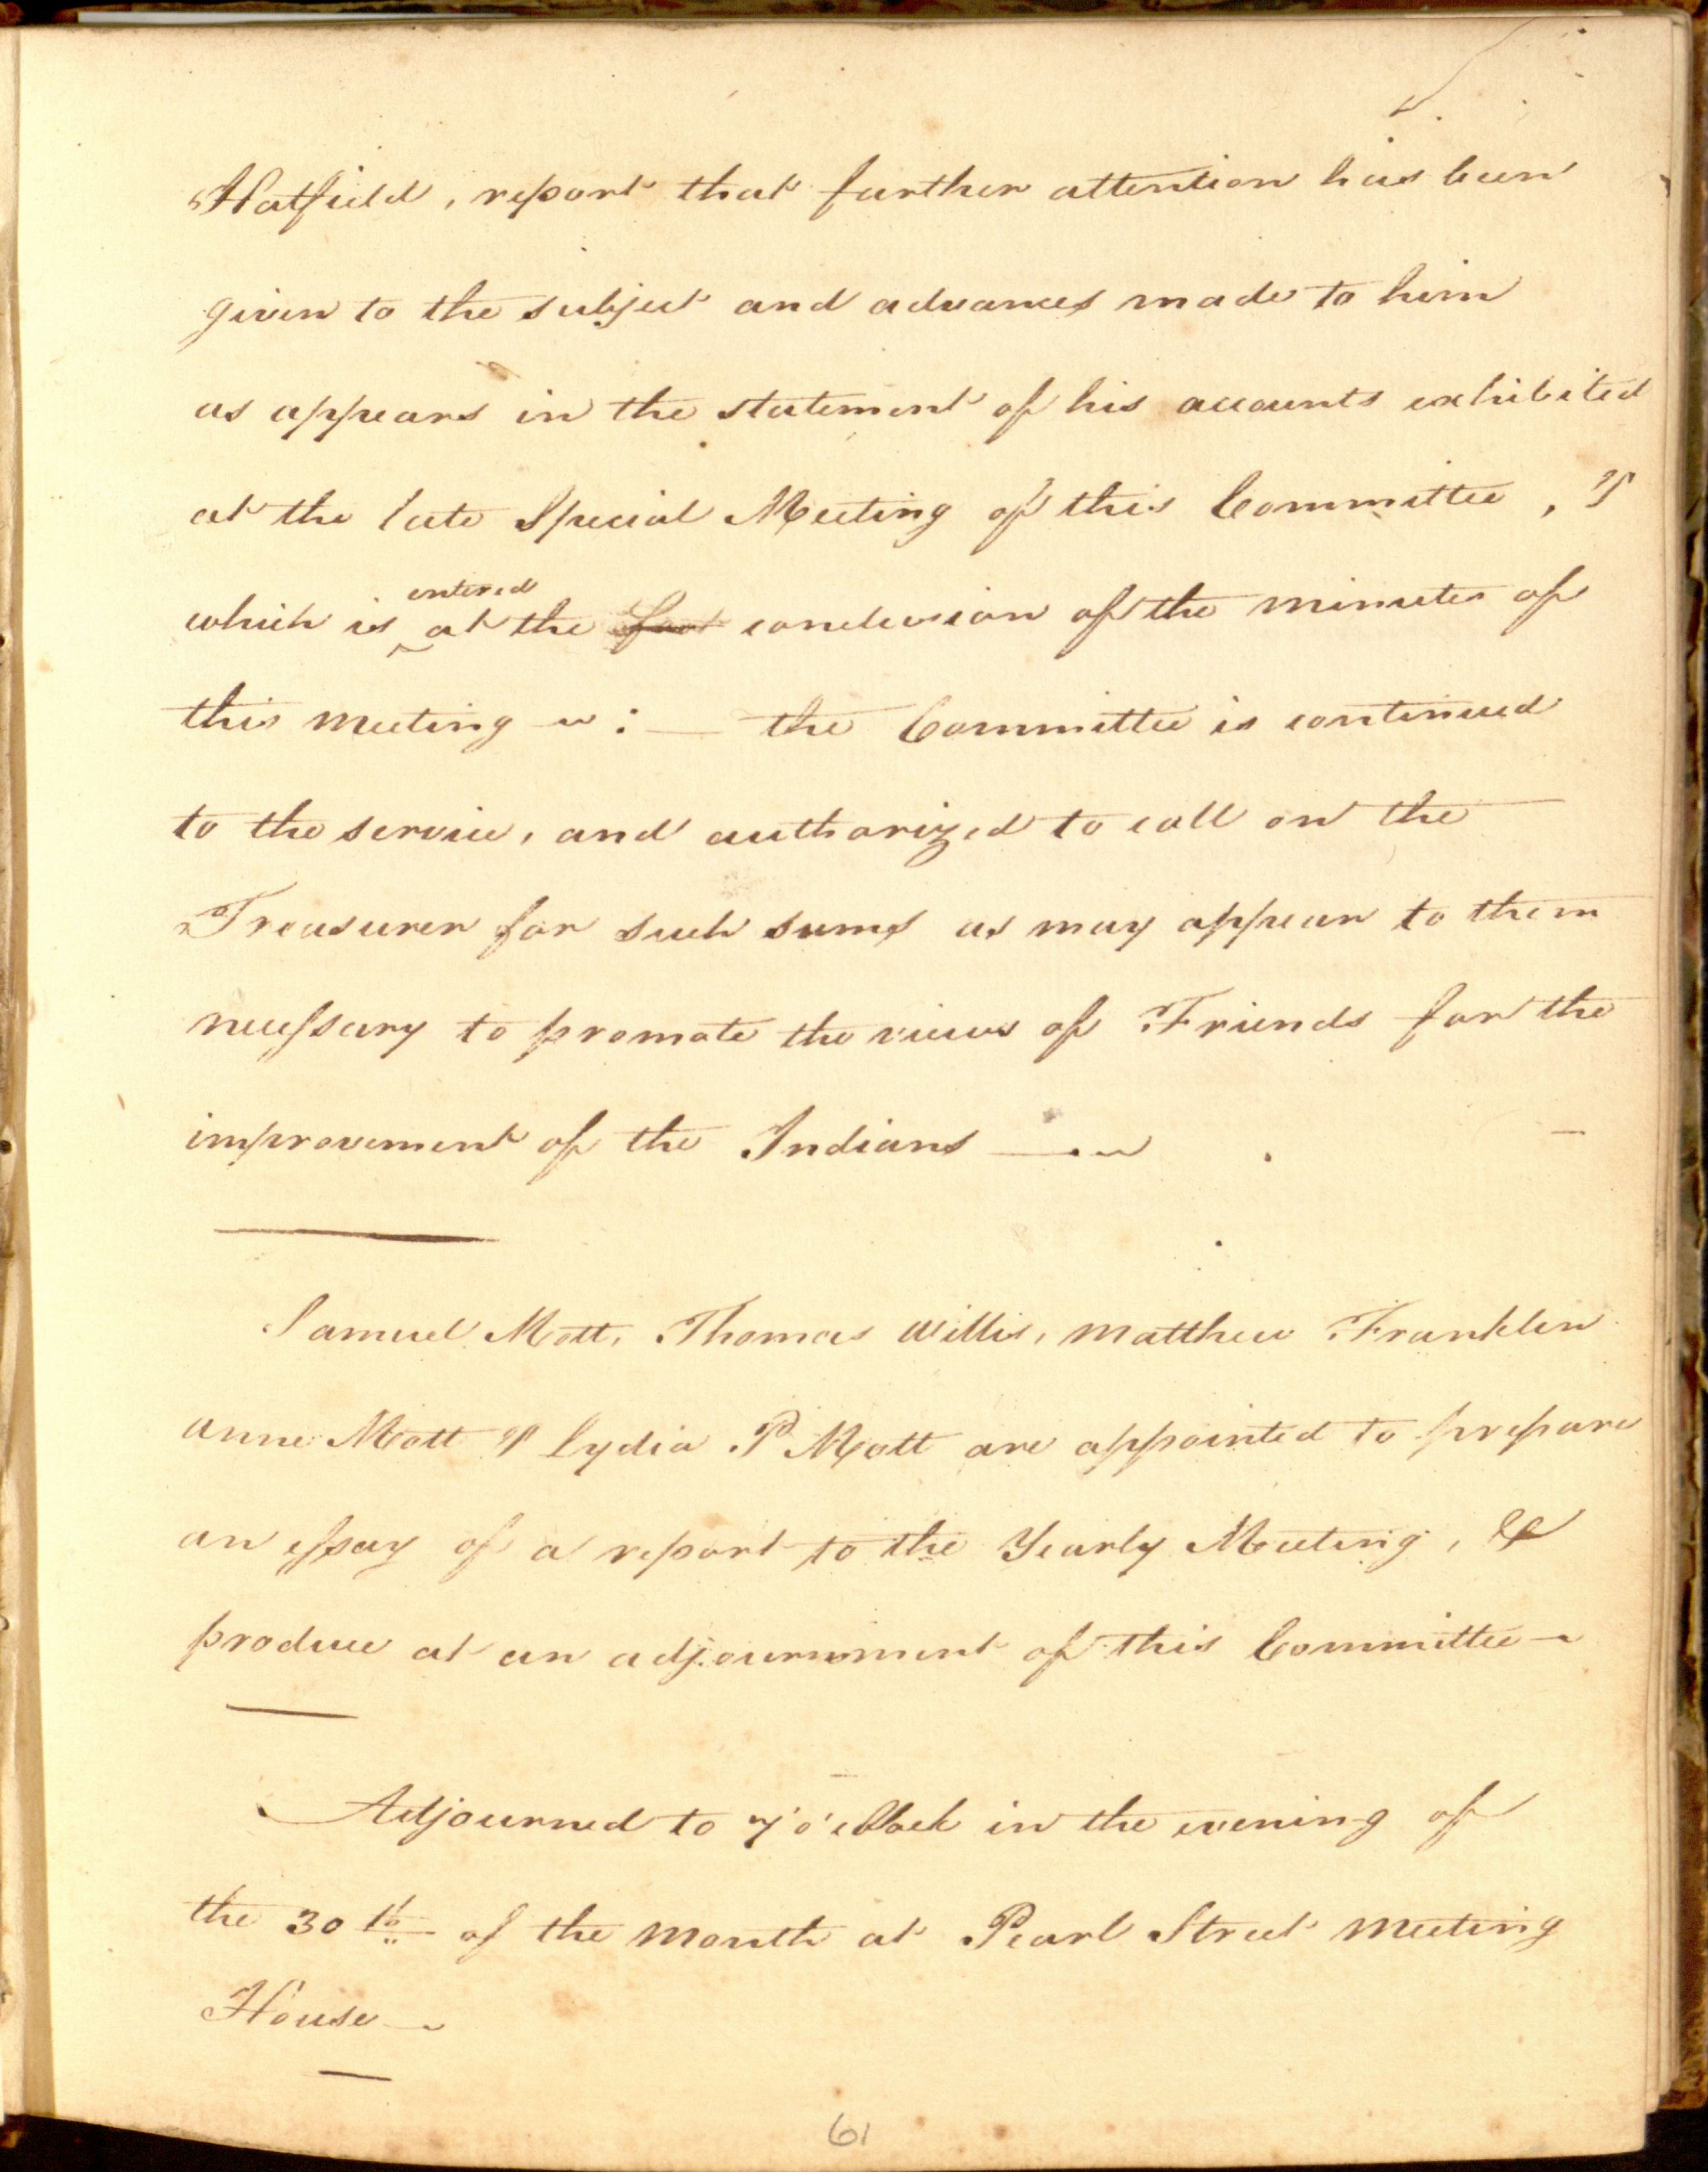 Hatfield, report that further attention has been
given to the subject and advances made to him
as appears in the statement of his accounts exhibited
at the late Special Meeting of this Committee, &
entered
which is at the conclusion of the minutes of
this meeting : — the Committee is continued
to the service, and authorized to call on the
Treasurer for such sums as may appear to them
necessary to promote the views of Friends for the
improvement of the Indians —
Samuel Mott, Thomas Willis, Matthew Franklin
Anne Mott & Lydia P Mott are appointed to prepare
an essay of a report to the Yearly Meeting, &
produce at an adjournment of this Committee
Adjourned to 7 o'Clock in the evening of
the 30th of the month at Pearl Street meeting
House
61